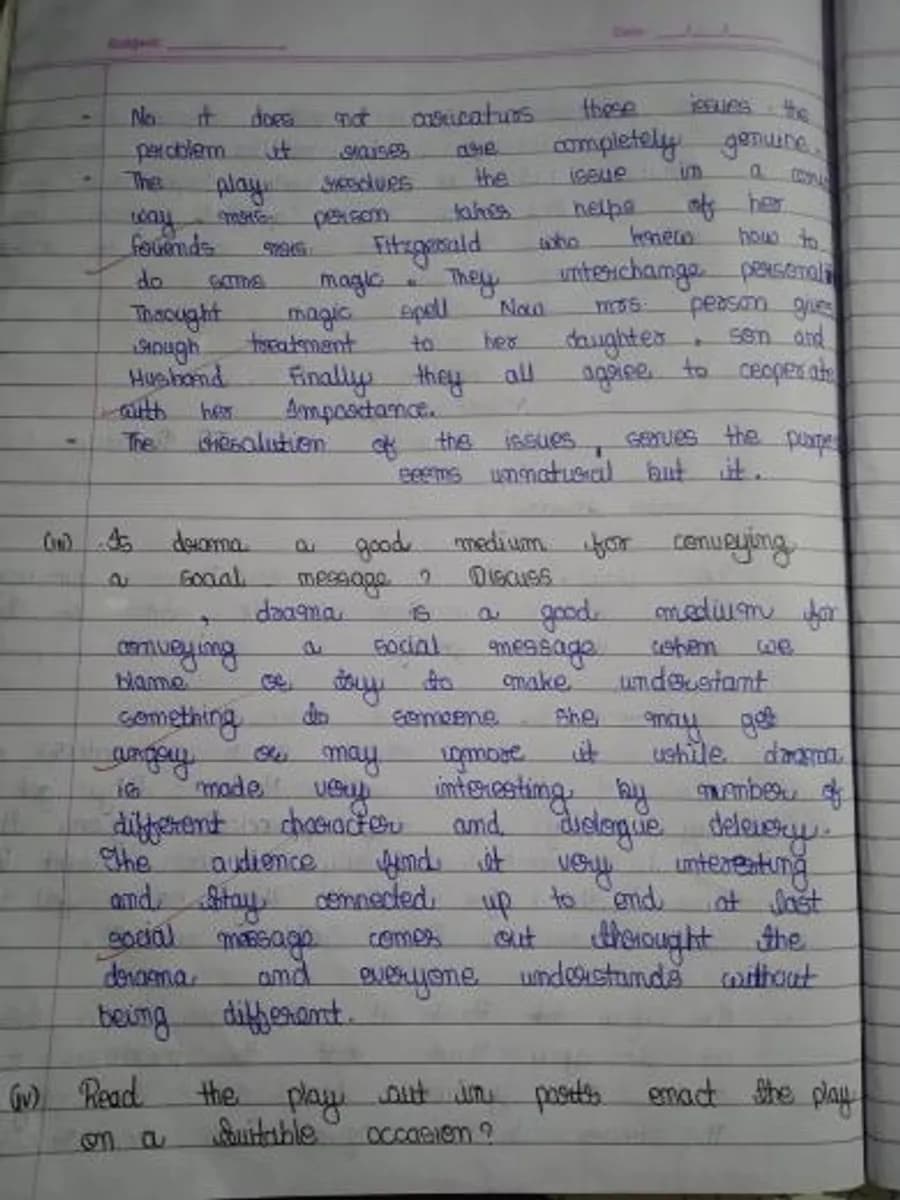 Subject:
Date: / /
- No it does not caricaturs these issues the
peroblem it raises are completely genuine.
- The play resolves the issue in a
way mrs. person takes helps of her
feriends mrs. Fitzgerald who knew how to
do some magic. They interchange
Throught magic spell Now mrs. person gives
rough treatment to her daughter, son and
Husband Finally they all agree to ceoperate
with her Importance.
- The resolution of the issues, serves the
seems unnatural but it.
(iii) Is derama a good medium for conveying
a social message? Discuss
, drama is a good medium for
conveying a social message when we
blame or try to make understant
something to someone she may get
angry or may ignore it while drama
is made very interesting by number of
different character and dielogue delevery.
The audience find it very interesting
and stay connected up to end at last
social message comes out therought the
derama and everyone understands without
being different.
(iv) Read the play out in parts enact the play
on a suitable occasion?